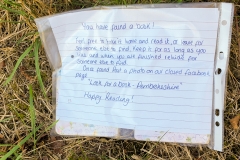 You have found a book!
Feel free to take it home and read it, or leave for
someone else to find, keep it for as long as you
like and when you are finished release for
someone else to find.
Once found post a photo on our closed Facebook
page.
Look for a Book - Pembrokeshire
Happy Reading!